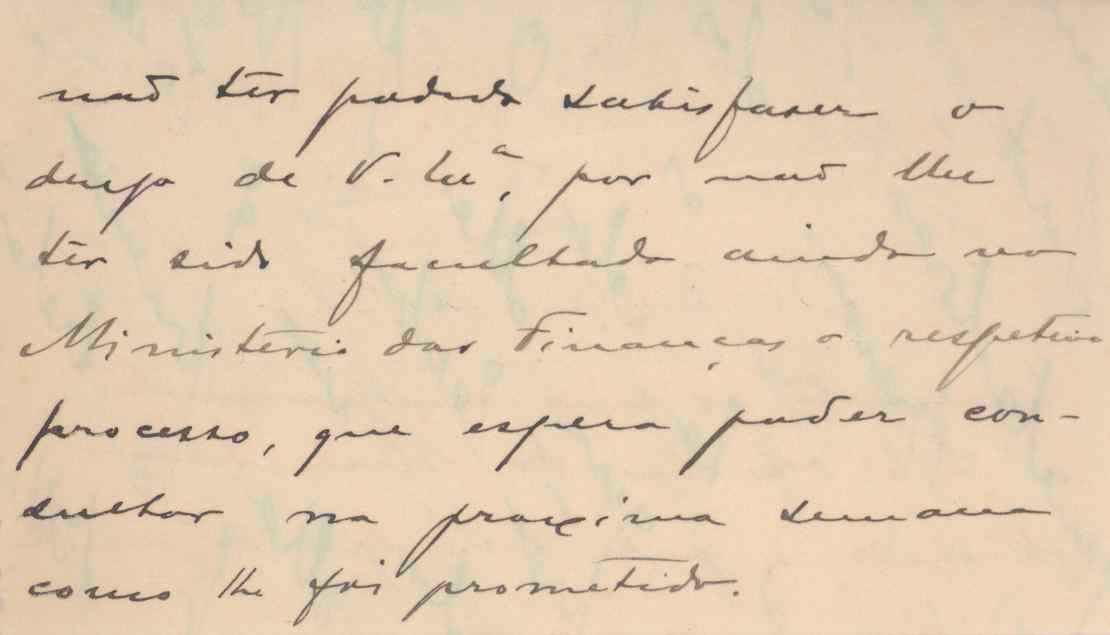 não ter podido satisfazer o
desejo de V. Exª, por não lhe
ter sido facultado ainda no
Ministério das Finanças o respetivo
processo, que espera poder con-
sultar na proxima semana
como lhe foi prometido.